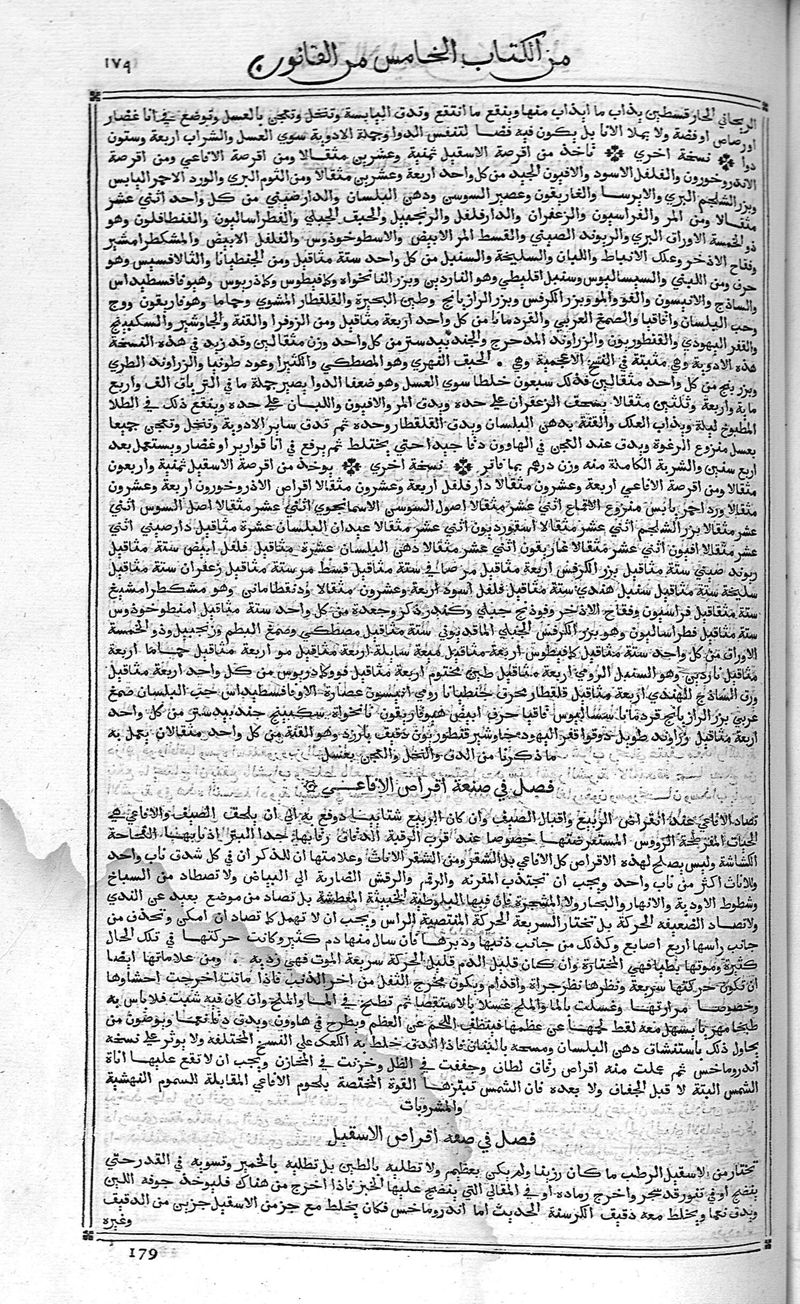 من الكتاب الخامس من القانون
١٧٩
الريحاني الحار قسطين يذاب ما ايذاب منها وينقع ما انتقع وتدق اليابسة وتنخل وتعجن بالعسل وتوضع في انا غضار
او رصاص او فضة ولا يملا الانا بل يكون فيه فضا لتنفس الدوا وجملة الادوية سوي العسل والشراب اربعة وستون
دوا نسخة اخري تاخذ من اقرصة الاسقيل ثمنية وعشرين مثقالا ومن اقرصة الافاعي ومن اقرصة
الاندروخورون والفلفل الاسود والافيون الجيد من كل واحد اربعة وعشرين مثقالا ومن الثوم البري والورد الاحمر اليابس
وبزر الشلجم البري والايرسا والغاريقون وعصير السوسن ودهن البلسان والدارصيني من كل واحد اثني عشر
مثقالا ومن المر والفراسيون والزعفران والدارفلفل والزنجبيل والحبف الجبلي والفطراساليون والفنطافلون وهو
ذو الخمسة الاوراق البري والريوند الصيني والقسط المر الابيض والاسطوخوذوس والفلفل الابيض والمشكطرامشير
وفقاح الاذخر وعلك الانباط واللبان والسليخة والسنبل من كل واحد ستة مثاقيل ومن الجنطيانا والثالافسيس وهو
حرف ومن اللبني والسيساليوس وسنبل اقليطي وهو الناردين وبزر النانخواه وكمافيطوس وكمادريوس وهيوفافسطيداس
والساذج والانيسون والفو والمو وبزر الكرفس وبزر الرازيانج وطين البحيرة والقلقطار المشوي وحماما وهوفاريقون ووج
وحب البلسان واقاقيا والصمغ العربي والقردمانا من كل واحد اربعة مثاقيل ومن الزوفرا والقنة والجاوشير والسكبينج
والقفر اليهودي والقنطوريون والزراوند المدحرج والجندبيدستر من كل واحد وزن مثقالين وقد زيد في هذه النسخة
هذه الادوية وهي مثبتة في النسخ الاعجمية وهي الحبف النهري وهو المصطكي والكثيرا وعود طونيا والزراوند الطري
وبزر بنج من كل واحد مثقالين فذلك سبعون خلطا سوي العسل وهو ضعفا الدوا يصير جملة ما في الترياق الف واربع
ماية واربعة وثلثين مثقالا يسحف الزعفران علي حده ويدق المر والافيون واللبان علي حده وينقع ذلك في الطلا
المطبوخ ليلة ويذاب العلك والقنة بدهن البلسان ويدق القلقطار وحده ثم تدق ساير الادوية وتنخل وتعجن جميعا
بعسل منزوع الرغوة ويدق عند العجن في الهاوون دقا جيدا حتي يختلط ثم يرفع في انا قوارير او غضار ويستعمل بعد
اربع سنين والشربة الكاملة منه وزن درهم بما فاتر نسخة اخري يوخذ من اقرصة الاسقيل ثمنية واربعون
مثقالا ومن اقرصة الافاعي اربعة وعشرون مثقالا دارفلفل اربعة وعشرون مثقالا اقراص الاذروخورون اربعة وعشرون
مثقالا ورد احمر يابس منزوع الاقماع اثني عشر مثقالا اصول السوسن الاسمانجوي اثني عشر مثقالا اصل السوس اثني
عشر مثقالا بزر الشلجم اثني عشر مثقالا اسقورديون اثني عشر مثقالا عيدان البلسان عشرة مثاقيل دارصيني اثني
عشر مثقالا افيون اثني عشر مثقالا غاريقون اثني عشر مثقالا دهن البلسان عشرة مثاقيل فلفل ابيض ستة مثاقيل
ريوند صيني ستة مثاقيل بزر الكرفس اربعة مثاقيل مر صافي ستة مثاقيل قسط مر ستة مثاقيل زعفران ستة مثاقيل
سليخة ستة مثاقيل سنبل هندي ستة مثاقيل فلفل اسود اربعة وعشرون مثقالا ودنقطاماني وهو مشكطرامشيغ
ستة مثقاقيل فراسيون وفقاح الاذخر وفوذنج جبلي وكندر ذكر وجعدة من كل واحد ستة مثاقيل اصطوخوذوس
ستة مثاقيل فطراساليون وهو بزر الكرفس الجبلي الماقدوني ستة مثاقيل مصطكي وصمغ البطم وزنجبيل وذو الخمسة
الاوراق من كل واحد ستة مثاقيل كمافيطوس اربعة مثاقيل ميعة سايلة اربعة مثاقيل مو اربعة مثاقيل حماما اربعة
مثاقيل ناردين وهو السنبل الرومي اربعة مثاقيل طين مختوم اربعة مثاقيل فو وكمادريوس من كل واحد اربعة مثاقيل
ورق الساذج الهندي اربعة مثاقيل قلقطار محرق جنطيانا رومي انيسون عصارة الاوفافسطيداس حب البلسان صمغ
عربي بزر الرازيانج قردمانا سساليوس قاقيا حرف ابيض هيوفاريقون نانخواة سكبينج جندبيدستر من كل واحد
اربعة مثاقيل وزاوند طويل دوقوا قفر اليهود جاوشير قنطوريون دقيق بارزد وهو القنة من كل واحد مثقالان يعمل به
ما ذكرنا من الدق والنخل والعجن بعسل
فصل في صنعة اقراص الافاعي
تصاد الافاعي عند انقراض الربيع واقبال الصيف وان كان الربيع شتاييا دوفع به الي ان يلحف الصيف والافاعي هي
الحيات المفرطحة الرووس المستعرضتها خصوصا عند قرب الرقبة الدقاق رقابها جدا البترا اذنابها الفحاحة
الكشاشة وليس يصلح لهذه الاقراص كل الافاعي بل الشقر ومن الشقر الاناث وعلامتها ان للذكران في كل شدق ناب واحد
وللاناث اكثر من ناب واحد ويجب ان تجتذب المقرنه والرقم والرقش الضاربة الي البياض ولا تصطاد من السباخ
وشطوط الاودية والانهار والبحار ولا المشجرة فان فيها البلوطية الخبيثة المعطشة بل تصاد من موضع بعيد عن الندي
ولا تصاد الضعيفة الحركة بل تختار السريعة الحركة المنتصبة الراس ويجب ان لا تهمل كما تصاد ان امكن وتحذف من
جانب راسها اربع اصابع وكذلك من جانب ذنبها ودبرها فان سال منها دم كثير وكانت حركتها في تلك الحال
كثيرة وموتها بطيا فهي المختارة وان كان قليل الدم قليل الحركة سريعة الموت فهي رديه ومن علاماتها ايضا
ان تكون حركتها سريعة ونظرها نظر جراة واقدام ويكون مخرج الثفل من اخر الذنب فاذا ماتت اخرجت احشاوها
وخصوصا مرارتها وغسلت بالما والملح غسلا بالاستقصا ثم تطبخ في الما والملح وان كان فيه شبت فلا باس به
طبخا مهريا يسهل معه لقط لحمها عن عظمها فينظف اللحم عن العظم ويطرح في هاوون ويدق دقا نعما ويوضون من
يحاول ذلك باستنشاق دهن البلسان ومسحه بالفنان فاذا اندق خلط به الكعك علي النسخ المختلفة ولا يوثر علي نسخة
اندروماخس ثم عملت منه اقراص رقاق لطاف وجففت في الظل وخزنت في المخازن ويجب ان لا تقع عليها اناة
الشمس البتة لا قبل الجفاف ولا بعده فان الشمس تبترها القوة المختصة بلحوم الافاعي المقابلة للسموم النهشية
والمشروبات
فصل في صفه اقراص الاسقيل
تختار من الاسقيل الرطب ما كان رزينا ولم يكن بعظيم ولا تطليه بالطين بل تطليه بالخمير وتسويه في القدر حتي
ينضج او في تنور قد سجر واخرج رماده او في المقالي التي ينضج عليها الخبز فاذا اخرج من هناك فليوخذ جوفه اللين
ويدق نعما ويخلط معه دقيق الكرسنة الحديث اما اندروماخس فكان يخلط مع جز من الاسقيل جزين من الدقيق
وغيره
179